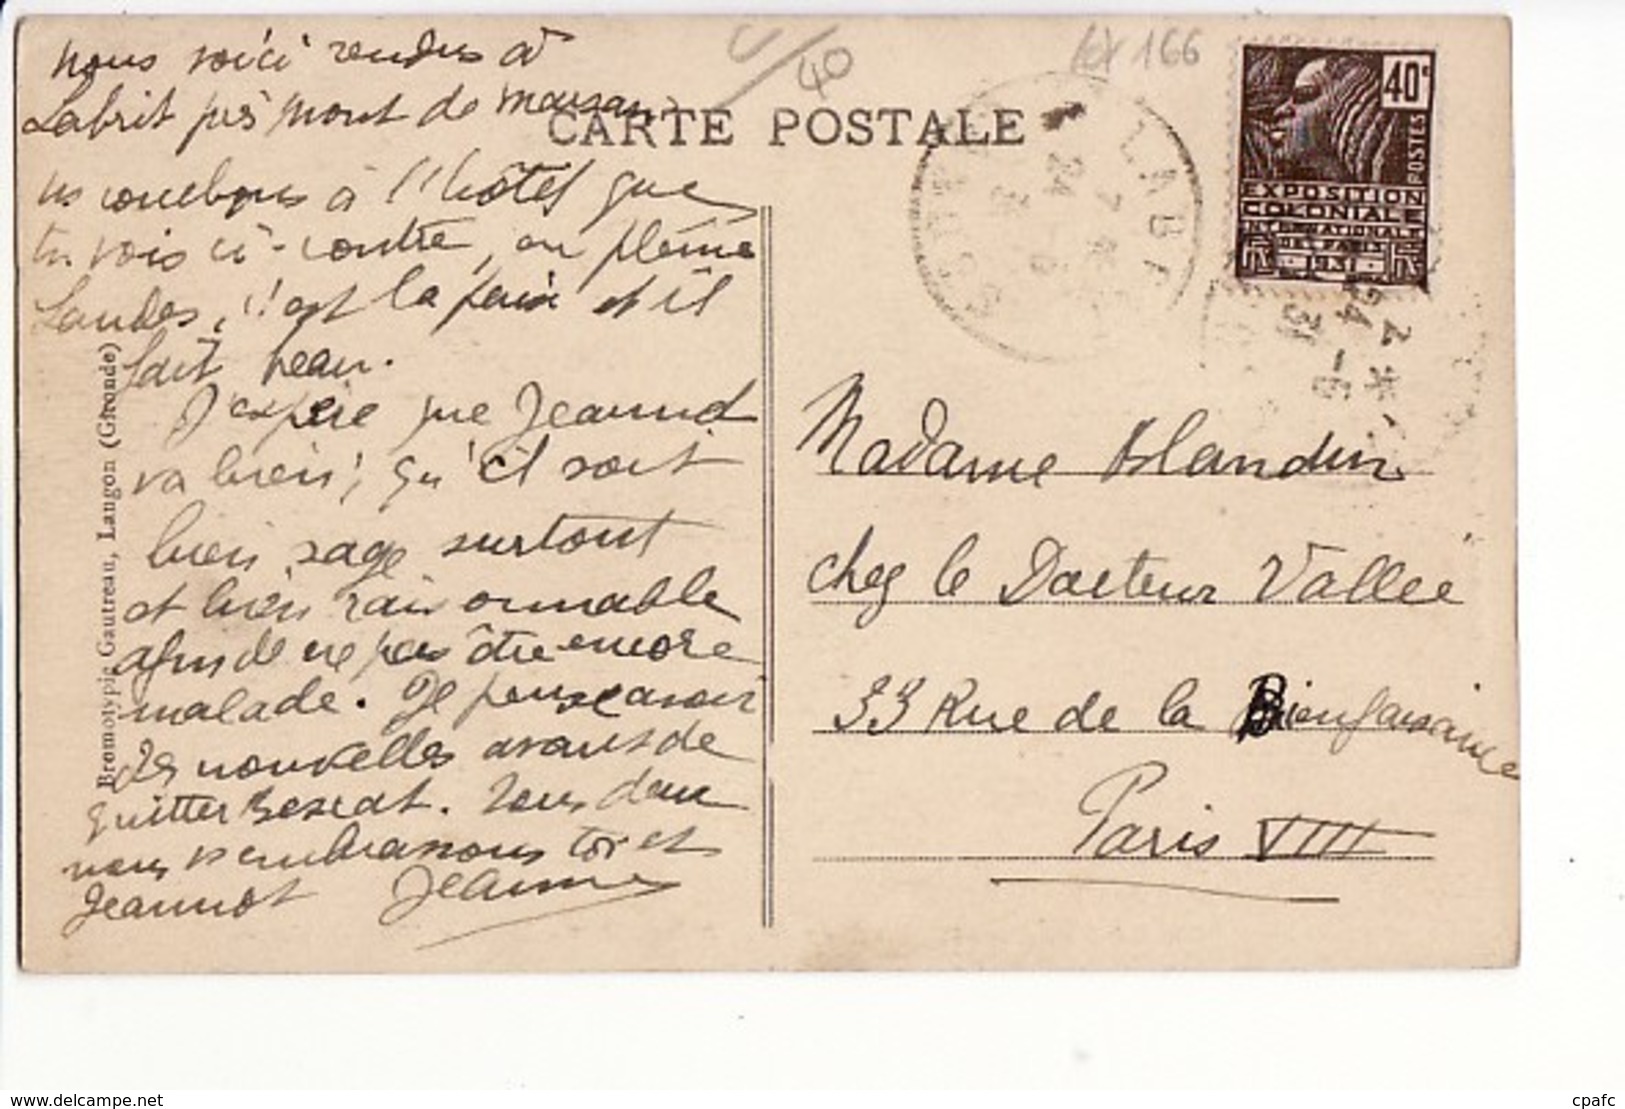 nous voici rendus à
Labrit près Mont de Marsan
ns couchons à l'hôtel que
tu vois ci-contre, en pleine
Landes, c'est la paix et il
fait beau.
J'espère que Jeannot
va bien, qu'il soit
bien sage surtout
et bien raisonnable
afin de ne pas être encore
malade. Je pense avoir
des nouvelles avant de
quitter. Tous deux
nous vs embrassons toi et
Jeannot Jeanne
Bromotypie Gautreau, Langon (Gironde)
CARTE POSTALE
40
166
LABR
7 *
24 - 6
40c
POSTES
EXPOSITION
COLONIALE
INTERNATIONALE
DE PARIS
1931
RF RF
7 *
24 - 6
31
Madame Blandin
chez le Docteur Vallée
33 Rue de la Bienfaisance
Paris VIII
www.delcampe.net
cpafc